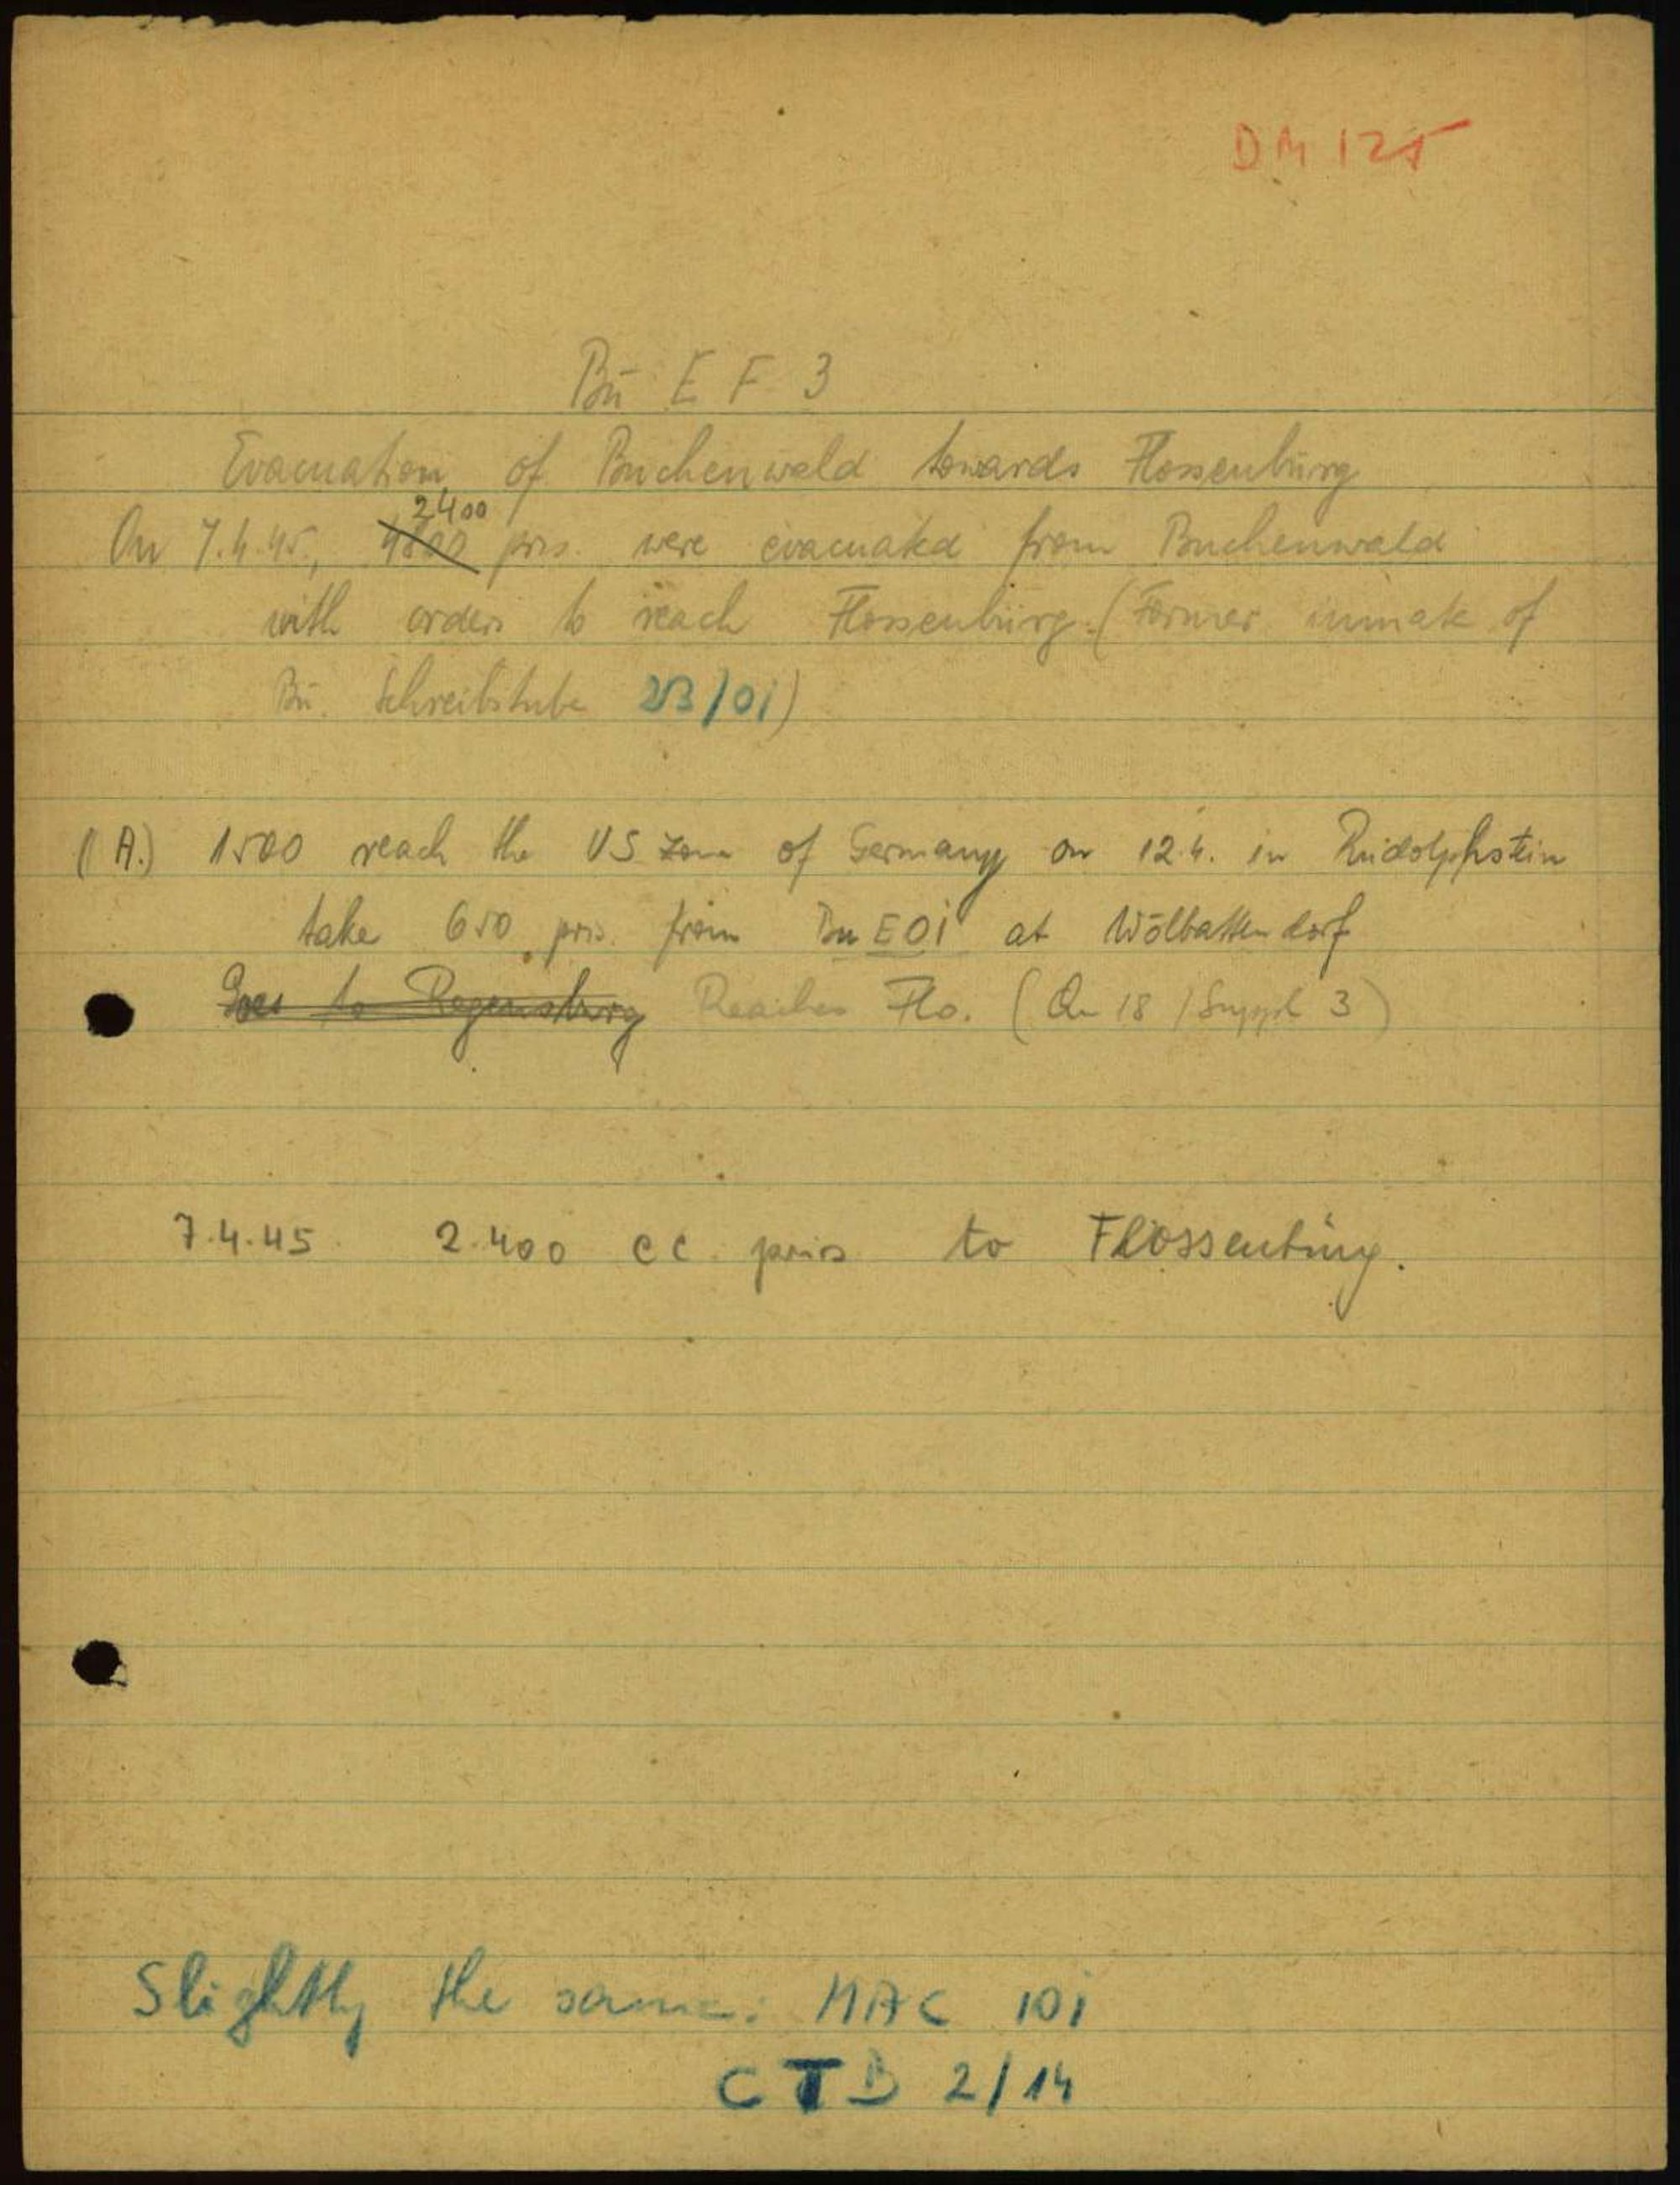 DM 125
Bu E F 3
Evacuation of Buchenwald towards Flossenbürg
2400
On 7.4.45, 4800 pris. were evacuated from Buchenwald
with orders to reach Flossenbürg. (Former inmate of
Bu. Schreibstube 23/01)
(A.) 1500 reach the US Zone of Germany on 12.4. in Rudolphstein
take 650 pris. from Bu E 01 at Wölbattendorf
Goes to Regensburg Reaches Flo. (Qu 18 / Suppl 3)
7.4.45 2.400 CC pris to Flossenbürg.
Slightly the same: MAC 101
CTB 2/14